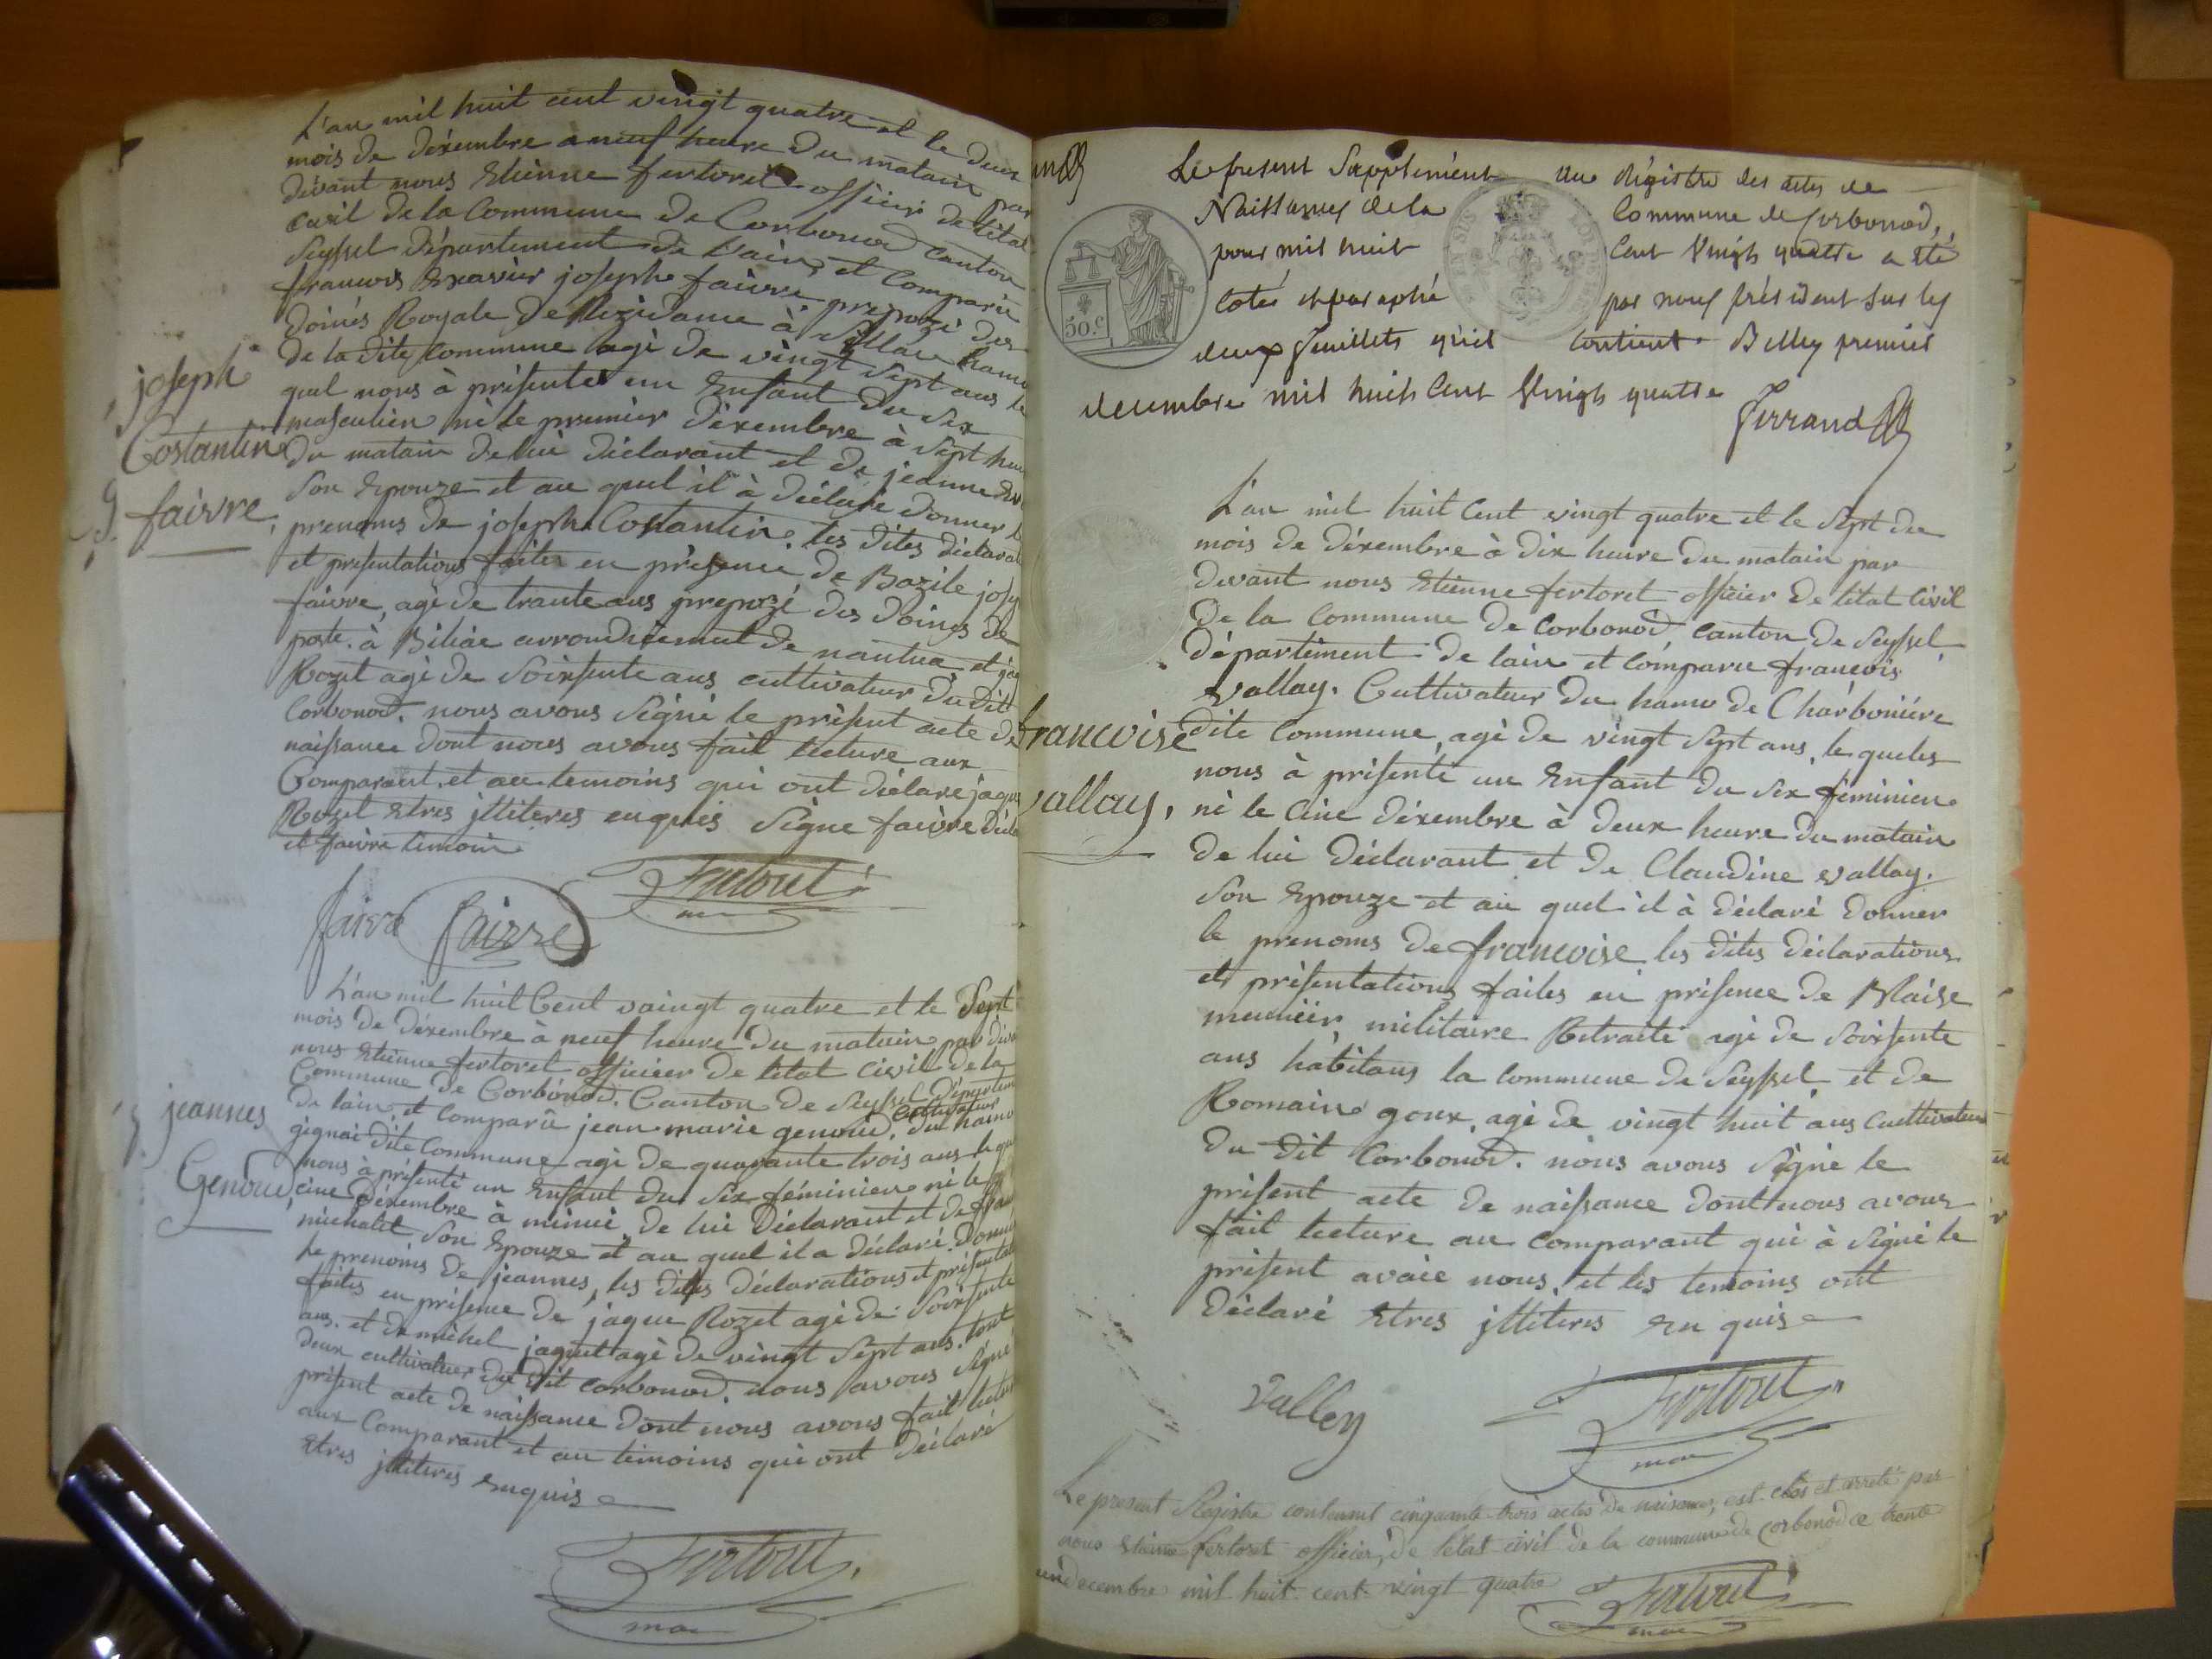 L'an mil huit cent vingt quatre et le deux
mois de déxembre a neuf heure du matain par
devant nous Etienne fertoret officier de létat
civil de la Commune de Corbonod Canton
Seyssel département de Lain, et Comparu
francois Exavier joseph faivre prepozé des
doines Royale de Rezidance à Sillac hamo
de la dite Commune agé de vingt sept ans le
quel nous à présentés un Enfant du sex
masculien né le premier déxembre à sept heu
du matain de lui déclarant et de jeanne
son Epouze et au quel il à déclaré donner l
prenoms de joseph Costantin. les dites déclarat
et présentations faites en présence de Bazile jos
faivre, agé de trante ans prepozé des doines de
poste à Biliac arrondicement de nantua et ja
Rozet agé de soixsente ans cultivateur du dit
Corbonod. nous avons signé le présent acte de
naissance dont nous avons fait lecture aux
Comparant et au temoins qui ont déclaré jaque
Rozet Etres jlliteres enquis signe faivre décla
et faivre temoin
joseph
Costantin
faivre
faivre faivre
Fertoret
L'an mil huit Cent vaingt quatre et le Sept
mois de déxembre à neuf heure du matain par deva
nous Etienne fertoret officier de létat Civil de la
Commune de Corbonod. Canton de Seyssel départem
de lain et Comparu jean marie genoud. Cultivateur du hamo
gignai dite Commune agé de quarante trois ans le que
nous à présenté un Enfant du sex féminien né le
cinc déxembre à minui de lui déclarant et de fran
michalet son Epouze et au quel il a déclaré donne
le prenoms de jeannes, les dites déclarations et présentat
faites en présence de jaque Rozet agé de soixsente
ans. et de michel jaquet agé de vingt sept ans. tout
deux cultivateur du dit Corbonod. nous avons signé
présent acte de naissance dont nous avons fait lectur
aux Comparant et au temoins qui ont déclaré
Etres jlliteres Enquis
jeannes
Genoud
Fertoret
mai
Le présent Supplément au Régistre des actes de
Naissances de la Commune de Corbonod,
pour mil huit Cent Vingt quatre a été
coté et paraphé par nous président sur les
deux feuillets qu'il contient. Belley premier
decembre mil huit Cent Vingt quatre
50.c
Ferrand
L'an mil huit Cent vingt quatre et le sept du
mois de déxembre à dix heure du matain par
devant nous Etienne fertoret officier de létat Civil
de la Commune de Corbonod Canton de Seyssel
département de lain et Comparu francois
vallay. Cultivateur du hamo de Charboniére
dite Commune, agé de vingt sept ans, le queles
nous à présenté un Enfant du sex féminien
né le Cinc déxembre à deux heure du matain
de lui déclarant et de Claudine vallay.
son Epouze et au quel il à déclaré donner
le prenoms de francoise les dites déclarations
et présentations faites en présence de Blaise
meuniér, militaire Retraité agé de soixsente
ans habitans la Commune de Seyssel et de
Romain goux, agé de vingt huit ans Cultivateur
du dit Corbonod. nous avons signé le
présent acte de naissance dont nous avons
fait lecture au Comparant qui à signé le
présent avaic nous, et les temoins ont
déclaré Etres jlliteres En quis
francoise
vallay,
Valley
Fertoret
mai
Le present Registre contenant cinquante trois actes de naissances, est clos et arreté par
nous Etienne fertoret officier, de l'état civil de la commune de Corbonod ce trente
un decembre mil huit cent vingt quatre
Fertoret
mai